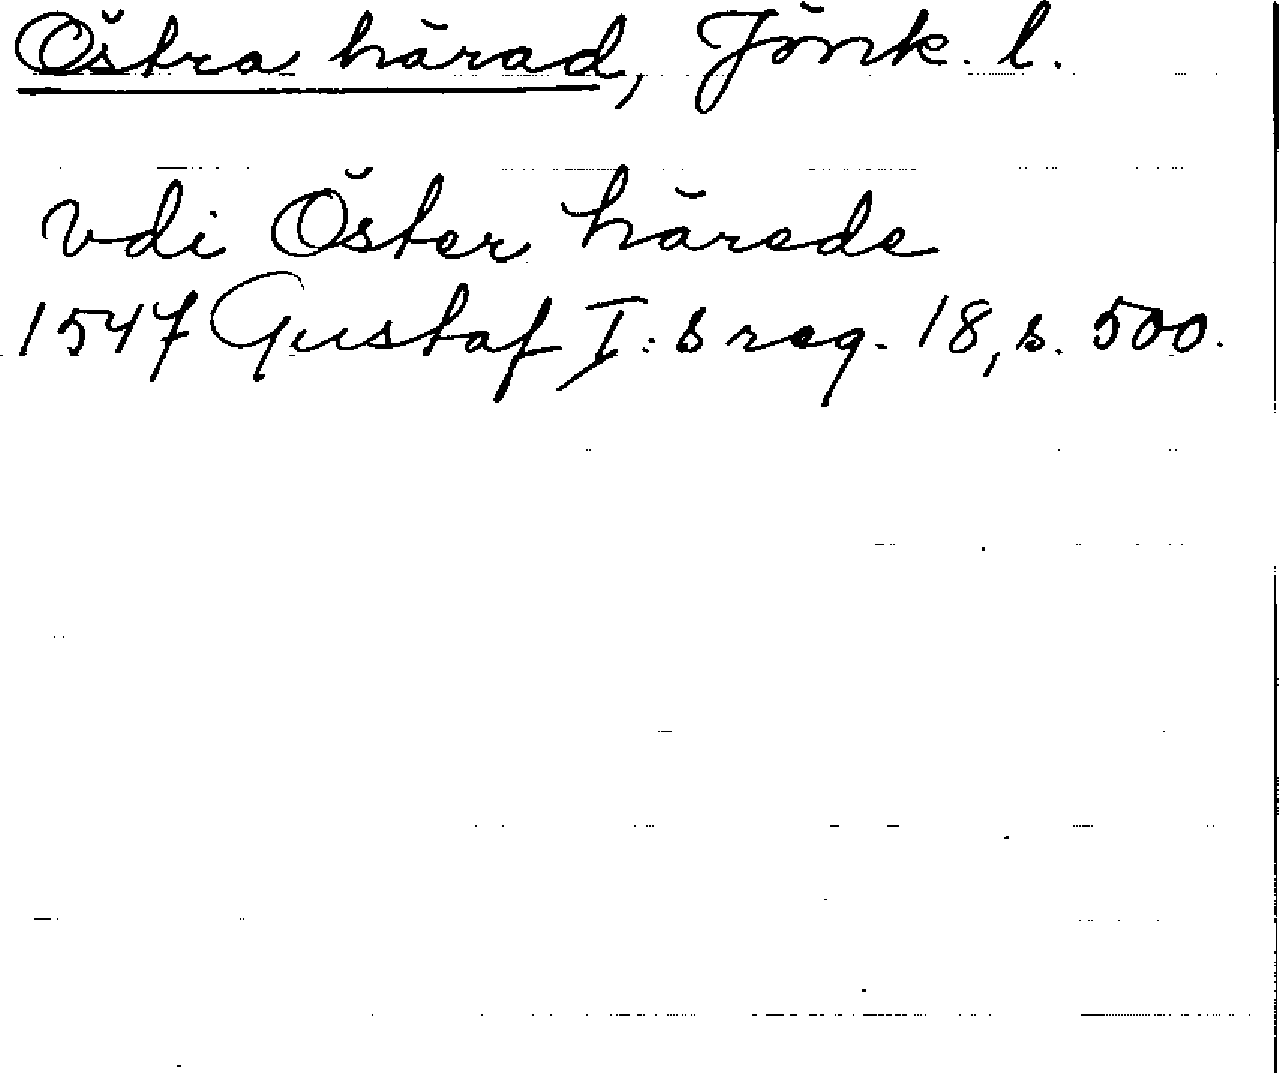 Östra härad, Jönk. l.
vdi Öster härede
1547 Gustaf I:s reg. 18, s. 500.